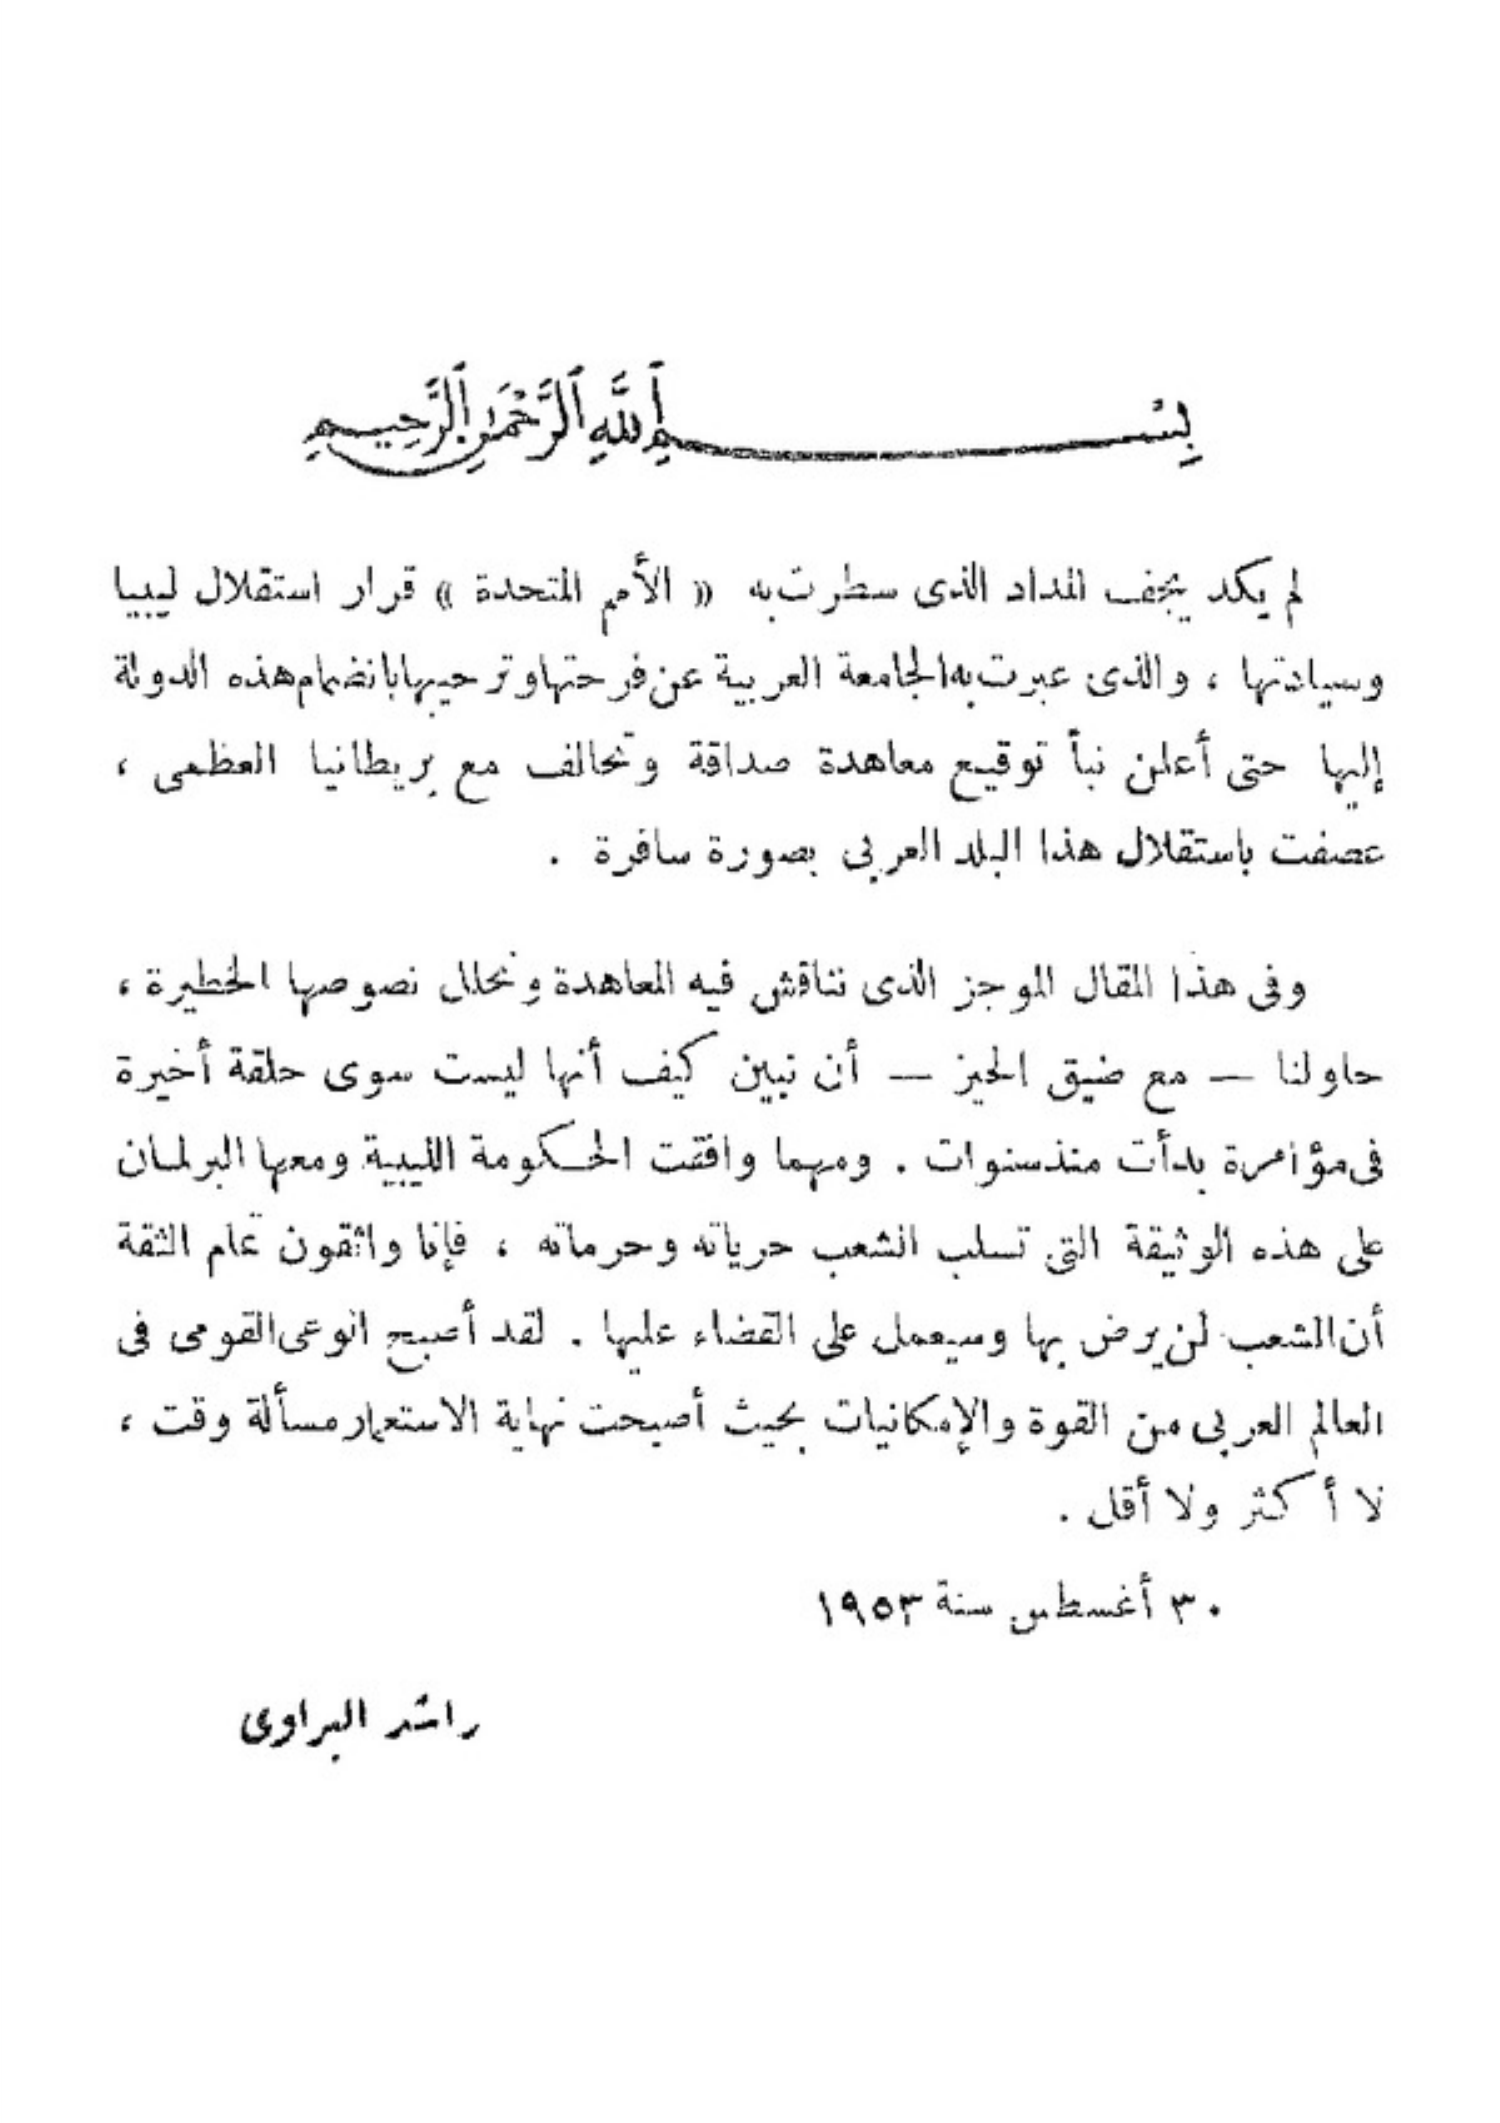 بِسْمِ ٱللَّهِ ٱلرَّحْمَٰنِ ٱلرَّحِيمِ
لم يكد يجف المداد الذى سطرت به « الأمم المتحدة » قرار استقلال ليبيا
وسيادتها ، والذى عبرت به الجامعة العربية عن فرحتها وترحيبها بانضمام هذه الدولة
إليها حتى أعلن نبأ توقيع معاهدة صداقة وتحالف مع بريطانيا العظمى ،
عصفت باستقلال هذا البلد العربى بصورة سافرة .
وفى هذا المقال الموجز الذى نناقش فيه المعاهدة ونحلل نصوصها الخطيرة ،
حاولنا — مع ضيق الحيز — أن نبين كيف أنها ليست سوى حلقة أخيرة
فى مؤامرة بدأت منذ سنوات . ومهما وافقت الحكومة الليبية ومعها البرلمان
على هذه الوثيقة التى تسلب الشعب حرياته وحرماته ، فإنا واثقون تمام الثقة
أن الشعب لن يرض بها وسيعمل على القضاء عليها . لقد أصبح الوعى القومى فى
العالم العربى من القوة والإمكانيات بحيث أصبحت نهاية الاستعمار مسألة وقت ،
لا أكثر ولا أقل .
٣٠ أغسطس سنة ١٩٥٣
راشد البراوى